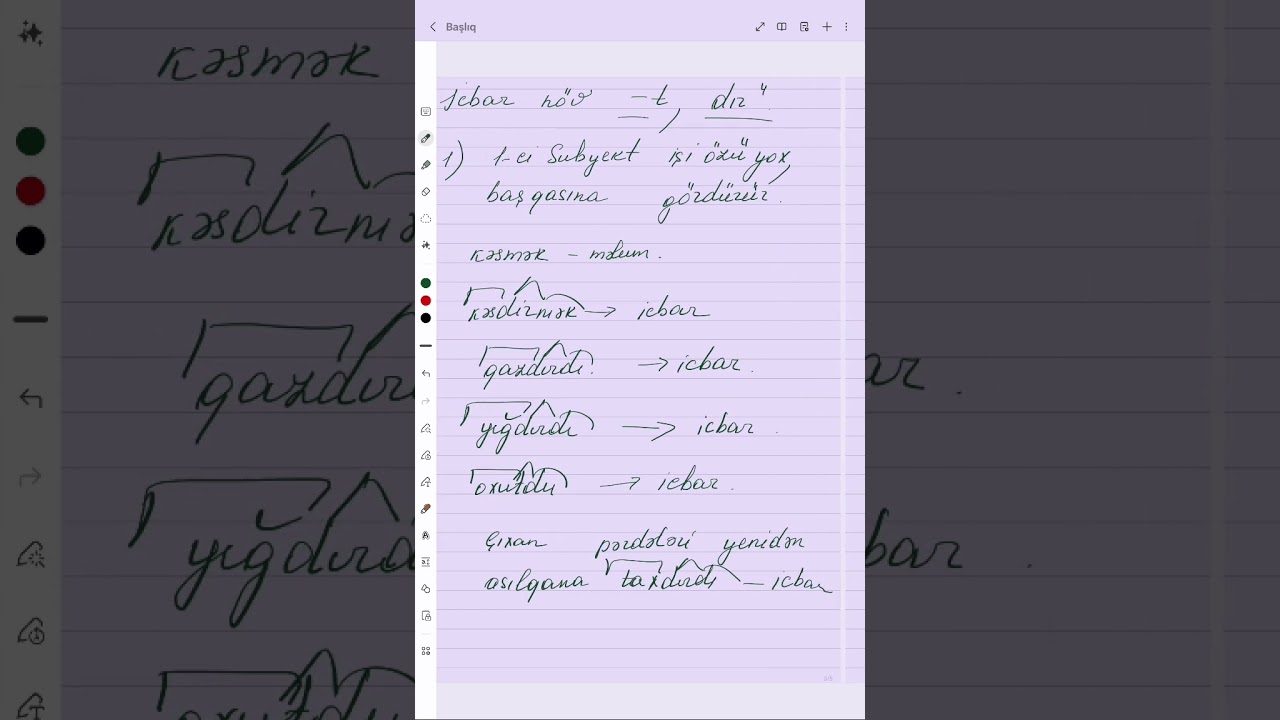 Başlıq
İcbar növ -t, dır⁴.
1) 1-ci Subyekt işi özü yox,
başqasına gördürür.
kəsmək - məlum.
kəsdirmək → icbar
qazdırdı. → icbar.
yığdırdı → icbar.
oxutdu → icbar.
Çıxan pərdələri yenidən
asılqana taxdırdı - icbar